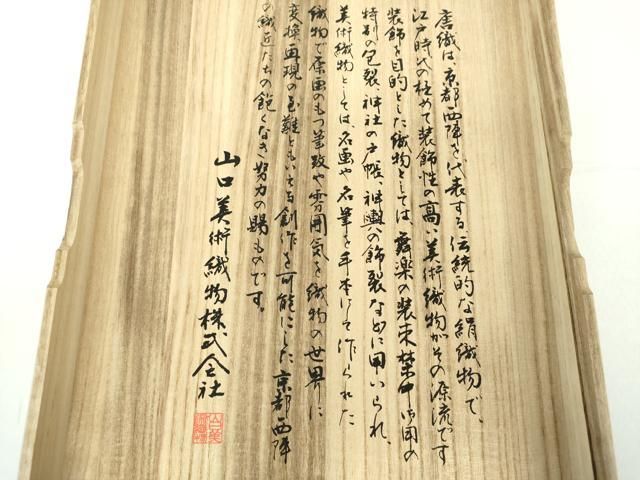 唐織は、京都西陣を代表する伝統的な絹織物で、
江戸時代の極めて装飾性の高い美術織物がその源流です
装飾を目的とした織物としては舞楽の装束禁中御用の
特別の包裂、神社の戸帳、神輿の飾裂などに用いられ、
美術織物としては、名画や名筆を手本にして作られた
織物で原画のもつ筆致や雰囲気を織物の世界に
変換再現の至難ともいえる創作を可能にした京都西陣
の織匠たちの飽くなき努力の賜ものです。
山口美術織物株式会社